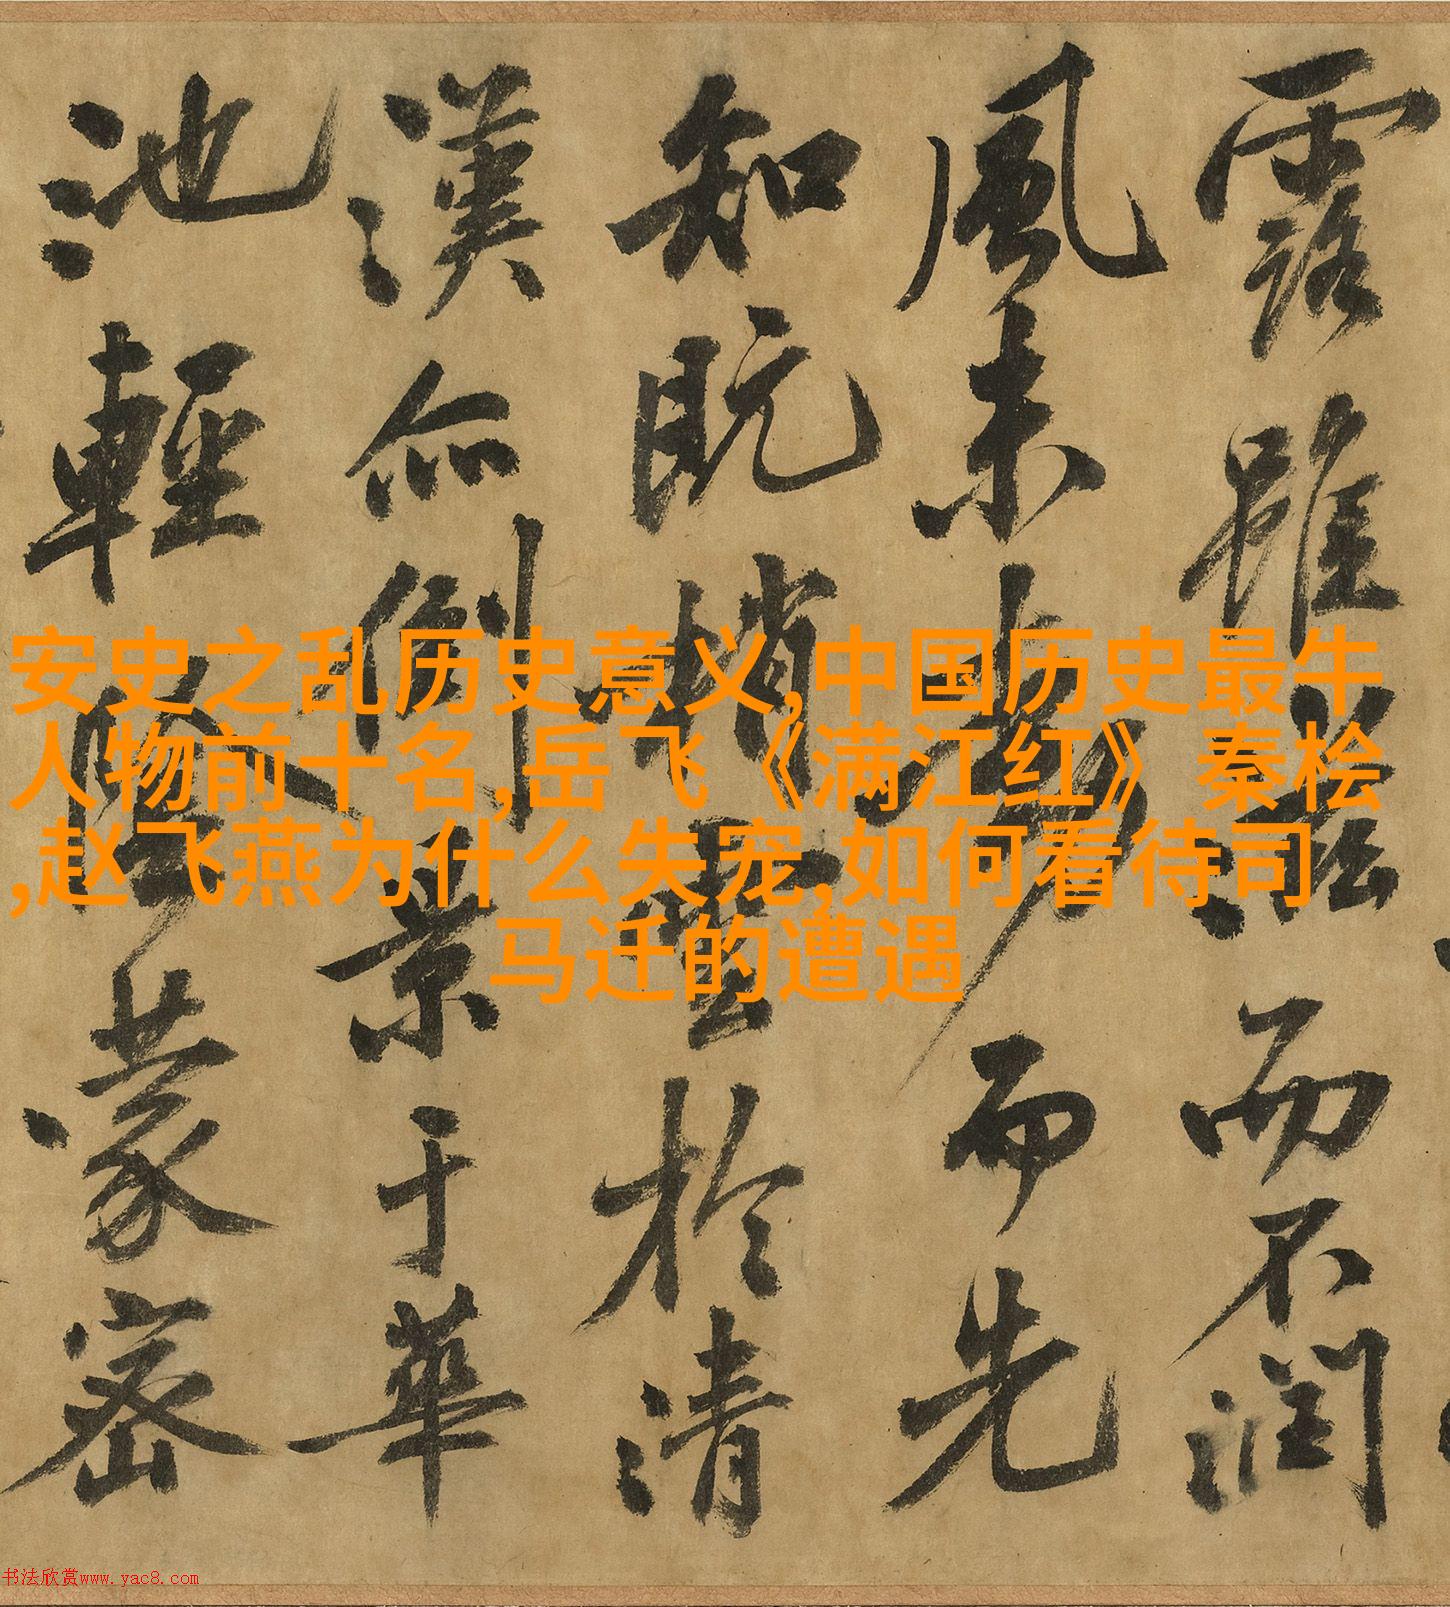 露雖滋而不潤
風未動而先
知既梢雲於清
漢亦倒景于華
池輕陰蒙密
安史之乱历史意义,中国历史最牛
人物前十名,岳飞《满江红》秦桧
,赵飞燕为什么失宠,如何看待司
马迁的遭遇
书法欣赏www.yac8.com